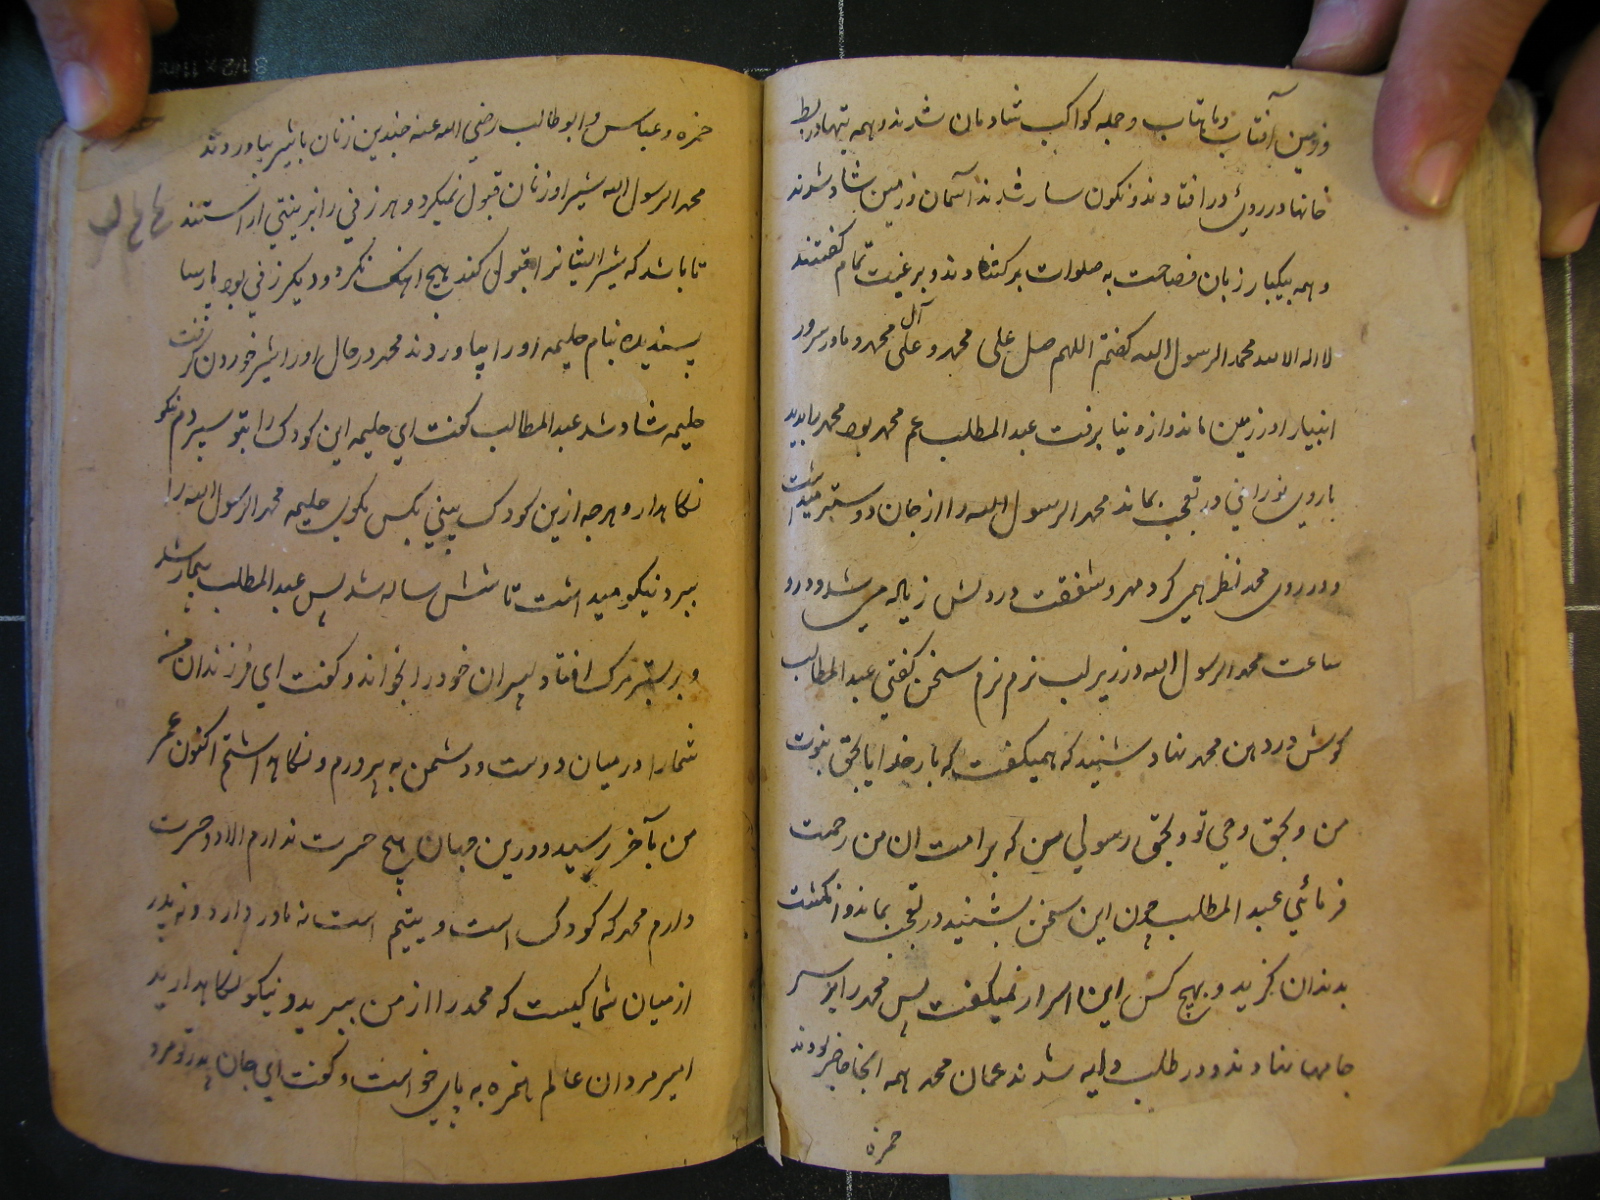 و زمین آفتاب و ماهتاب و جمله کواکب شادمان شدند و همه بتها در
خانها در روی در افتادند و نکون سار شدند آسمان و زمین شاد شدند
و همه بیکبار زبان فصاحت به صلوات برکشادند و برغبت تمام کفتند
لا اله الا الله محمد الرسول الله کفتم اللهم صل علی محمد و علی آل محمد و مادر سرور
انبیا را و زمین ماند و از دنیا برفت عبد المطلب عم محمد بود محمد را بدید
با روی نورانی در تعجب بماند محمد الرسول الله را از جان دوستر میداشت
و در روی محمد نظر همی کرد مهر و شفقت در دلش زیاده می شد و در
ساعت محمد الرسول الله در زیر لب نرم نرم سخن کفتی عبد المطالب
کوش در دهن محمد نهاد شنید که همیکفت که بار خدایا بحق نبوت
من و بحق وحی تو و بحق رسولی من که بر امت ان من رحمت
فرمائی عبد المطلب چون این سخن بشنید در تعجب بماند و انکشت
بدندان کزید و بهیچ کس این اسرار نمیکفت پس محمد را بر سر
جامها نهادند و در طلب دایه شدند عمان محمد همه انجا حاضر بودند
حمزه
حمزه و عباس و ابو طالب رضی الله عنه چندین زنان با شیر بیاوردند
محمد الرسول الله شیر او زنان قبول نمیکرد و هر زنی را بزینتی اراستند
تا باشد که شیر ایشانرا قبول کند هیچ اهنک نکرد و دیکر زنی بود پارسا
پسندیده بنام حلیمه او را بیاوردند محمد در حال او را شیر خوردن کرفت
حلیمه شاد شد عبد المطالب کفت ای حلیمه این کودک را بتو سپردم نکو
نکاهدار و هرچه ازین کودک بینی بکس مکوی حلیمه محمد الرسول الله را
ببرد نیکو میداشت تا شش ساله شد پس عبد المطلب بیمار شد
و بر بستر مرک افتاد پسران خود را بخواند و کفت ای فرزندان من
شما را در میان دوست و دشمن به پروردم و نکاه داشتم اکنون عمر
من بآخر رسید و درین جهان هیچ حسرت ندارم الا دو حسرت
دارم محمد که کودک است و یتیم است نه مادر دارد و نه پدر
از میان شما کیست که محمد را از من ببرید و نیکو نکاهدارید
امیر مردان عالم حمزه به پای خواست و کفت ای جان پدر تو مرد